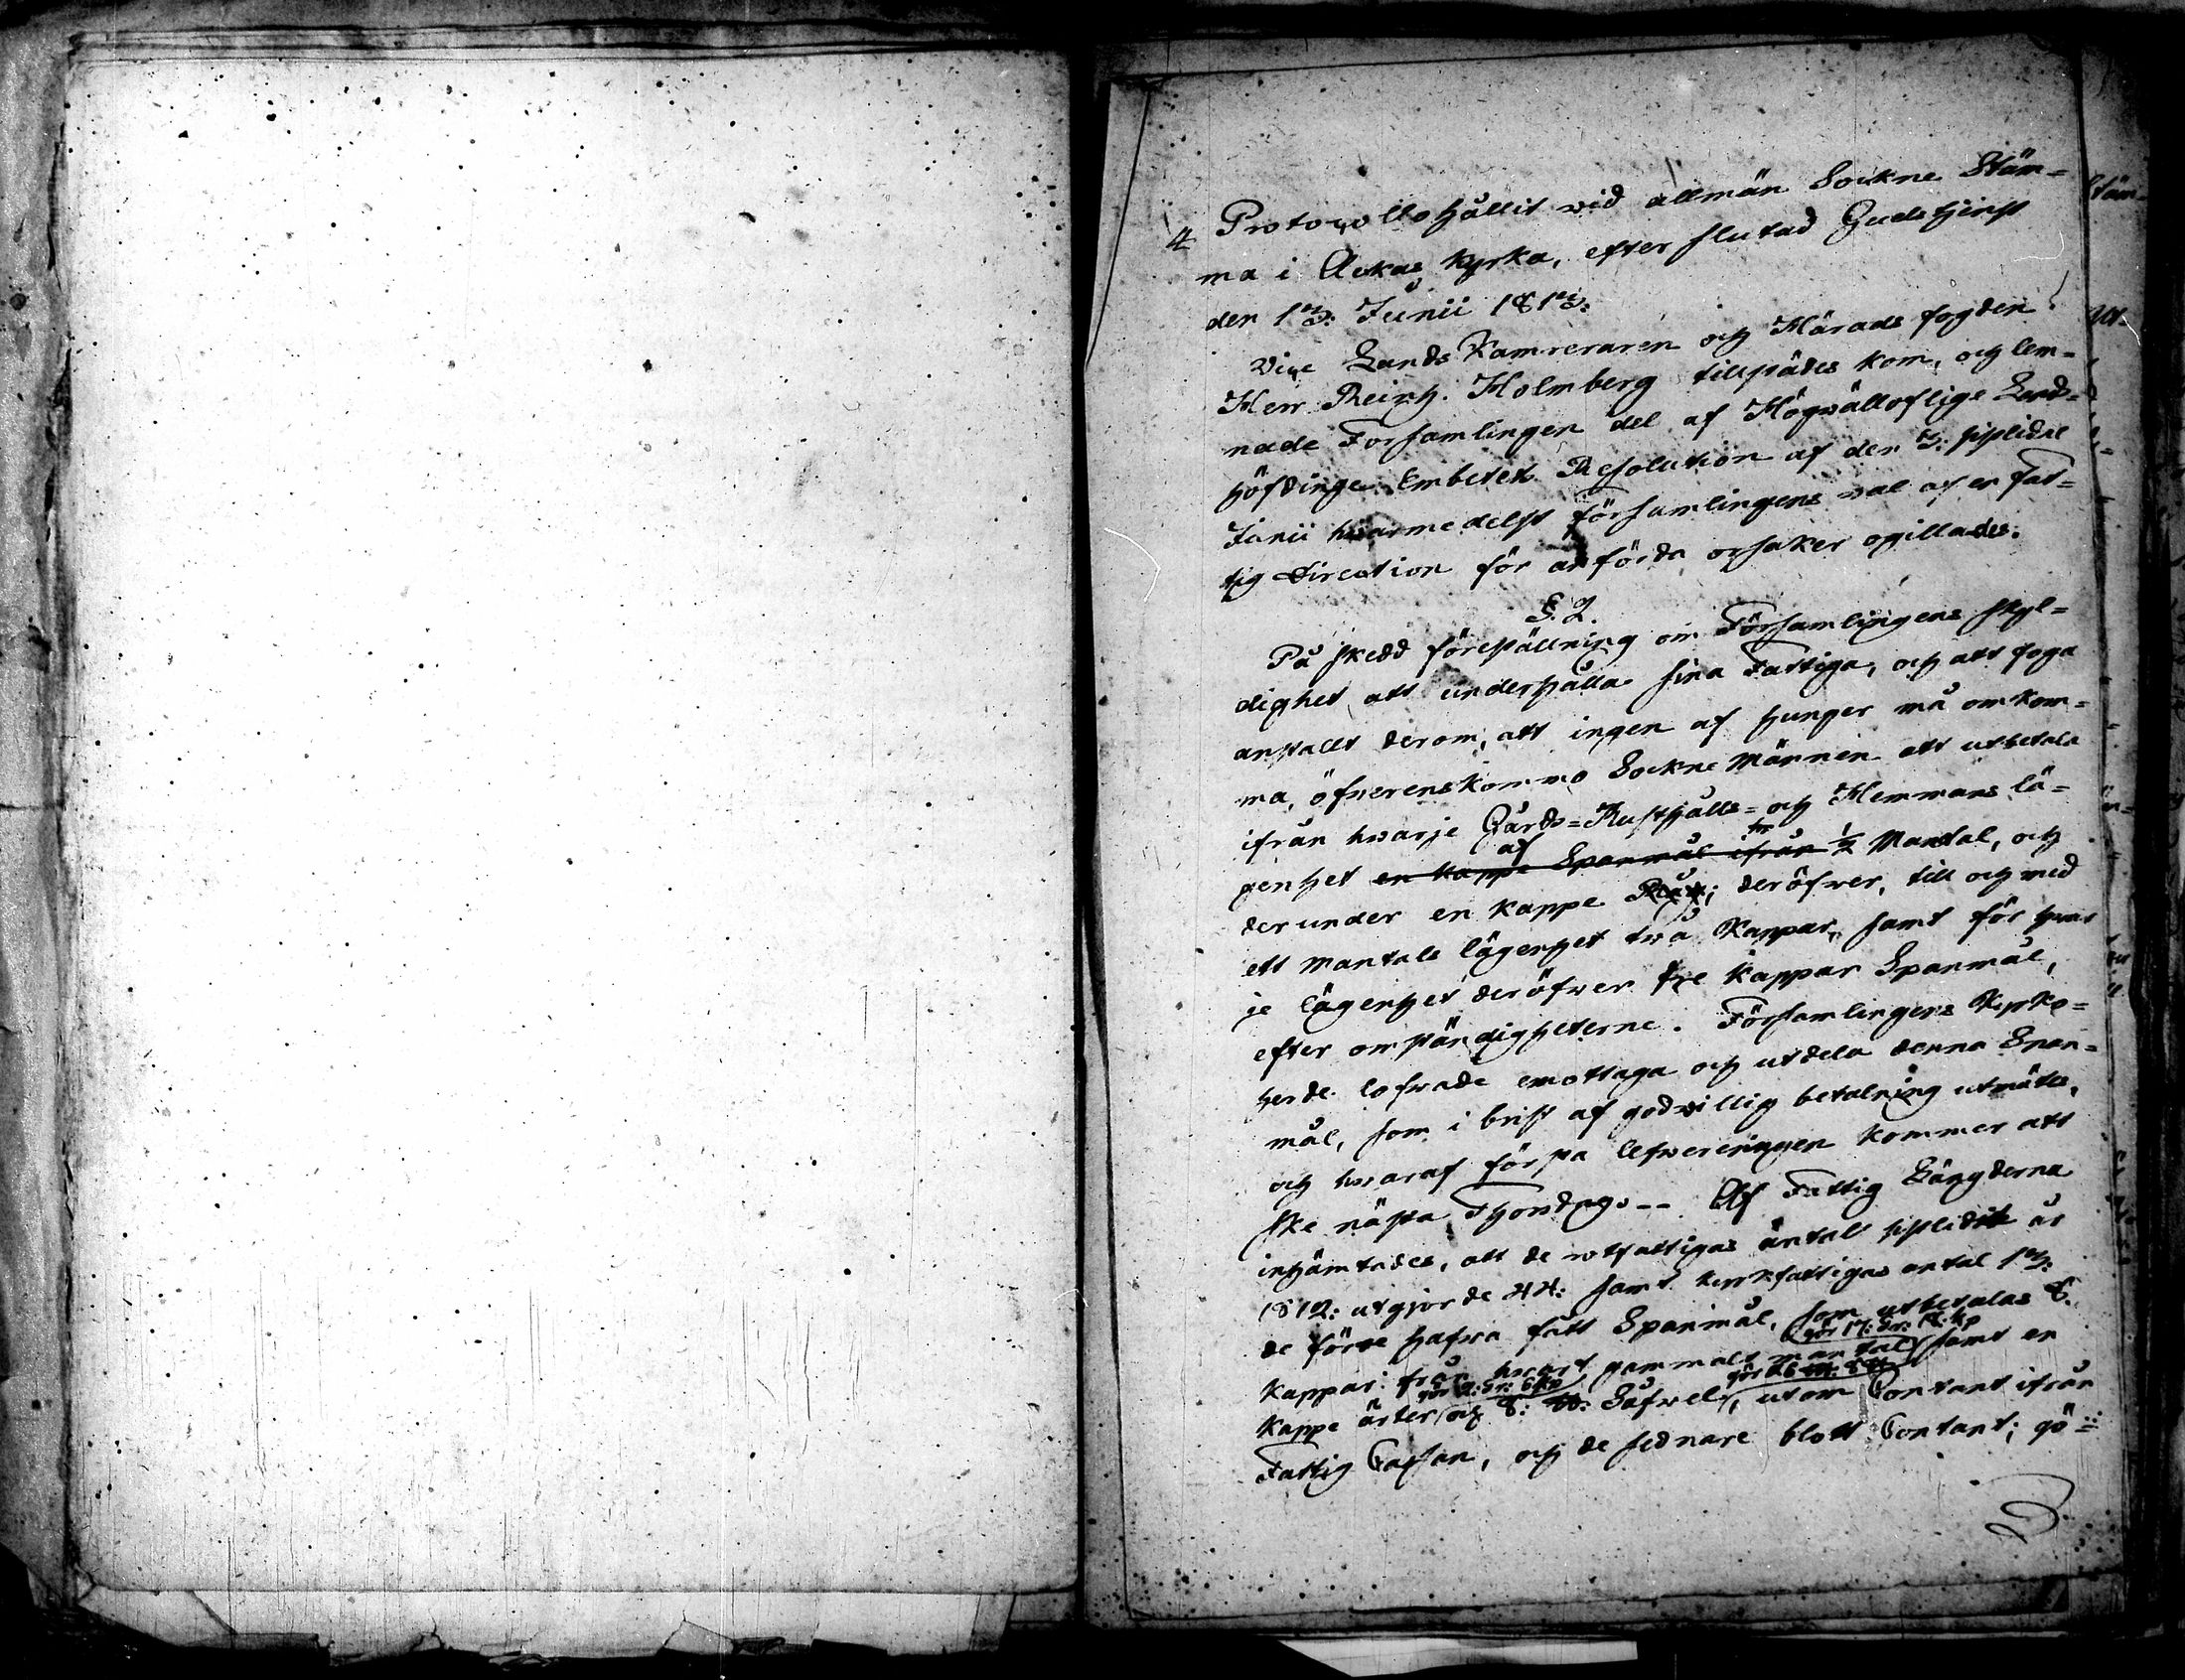 4 Protocollo hållit vid allmän Sockne Stäm=
ma i Ackas Kyrka, efter slutad Gudstjenst
den 13: Junii 1813:
Vice Lands Kamreraren och Härads fogden
Herr Reinh. Holmberg tillstädes kom, och lem=
nade Församlingen del af Högvällofliga Lands=
höfdinge Embetets Resolution af den 3: sistlidne
Junii hvarmedelst församlingens val af en fat=
tig Direction för anförda orsaker ogillades.
§. 2.
På skedd föreställning om Församlingens skyl=
dighet att underhålla sina Fattiga, och att foga
anstallt derom, att ingen af hunger må omkom=
ma, öfverenskommo Sockne Männen att utbetala
ifrån hvarje Gårds= Rusthålls= och Hemmans lä=
genhet en kappe Spanmål ifrån af 1/2 Mantal, och
derunder en kappe deröfver, till och med
ett mantals lägenhet två Kappar, samt för hvar
je lägenhet deröfver tre kappar Spanmål,
efter omständigheterne. Församlingens Kyrko=
herde lofvade emottaga och utdela denna Span=
mål, som i brist af godvillig betalning utmätes,
och hvaraf första lefvereringen kommer att
ske nästa Thorsdag. -- Af Fattig Längderna
inhämtades, att de rotfattigas antal sistlidit år
1812: utgjorde 44: samt kyrkfattigas antal 13:
de förre hafva fått Spanmål, som utbetalas 8.
gör 17: Sr: 18: kp
Kappar: från hvart gammalt mantal samt en
gör 2: Sr: 6 kp
Kappe ärter och 8: Såfvel, utom Contant ifrån
Fattig Cassan, och de sednare blott Contant; gö=